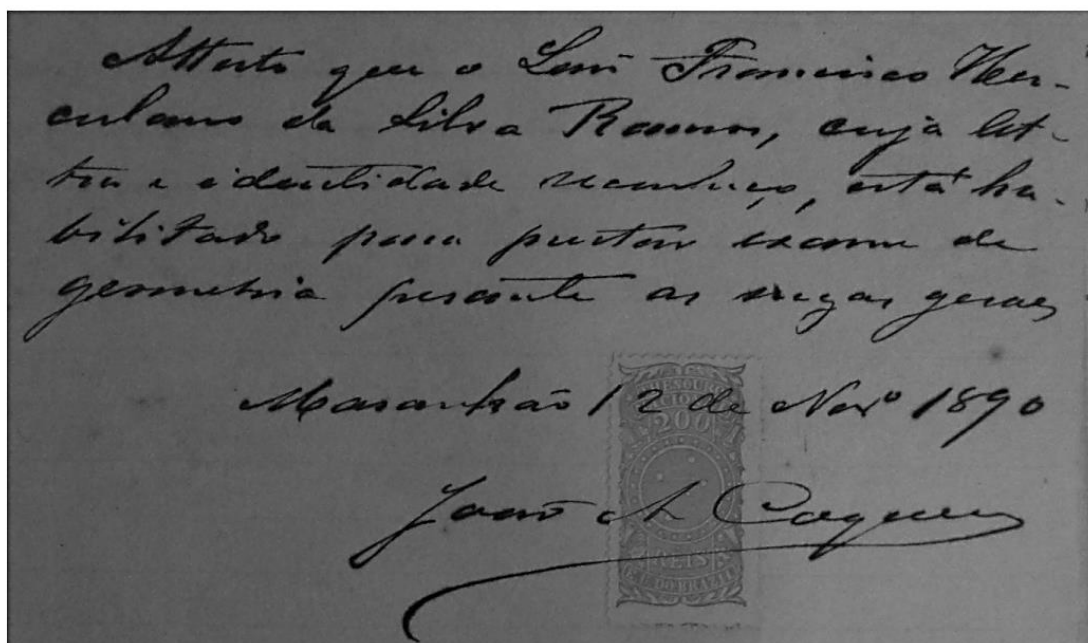 Attesto que o Snr Francisco Her-
culano da Silva Ramos, cuja let-
tra e identidade reconheço, está ha-
bilitado para prestar exame de
geometria perante as mezas geraes
Maranhão 12 de Novº 1890
João A Coqueiro
THESOURO
NACIONAL
200
REIS
E. U. DO BRAZIL